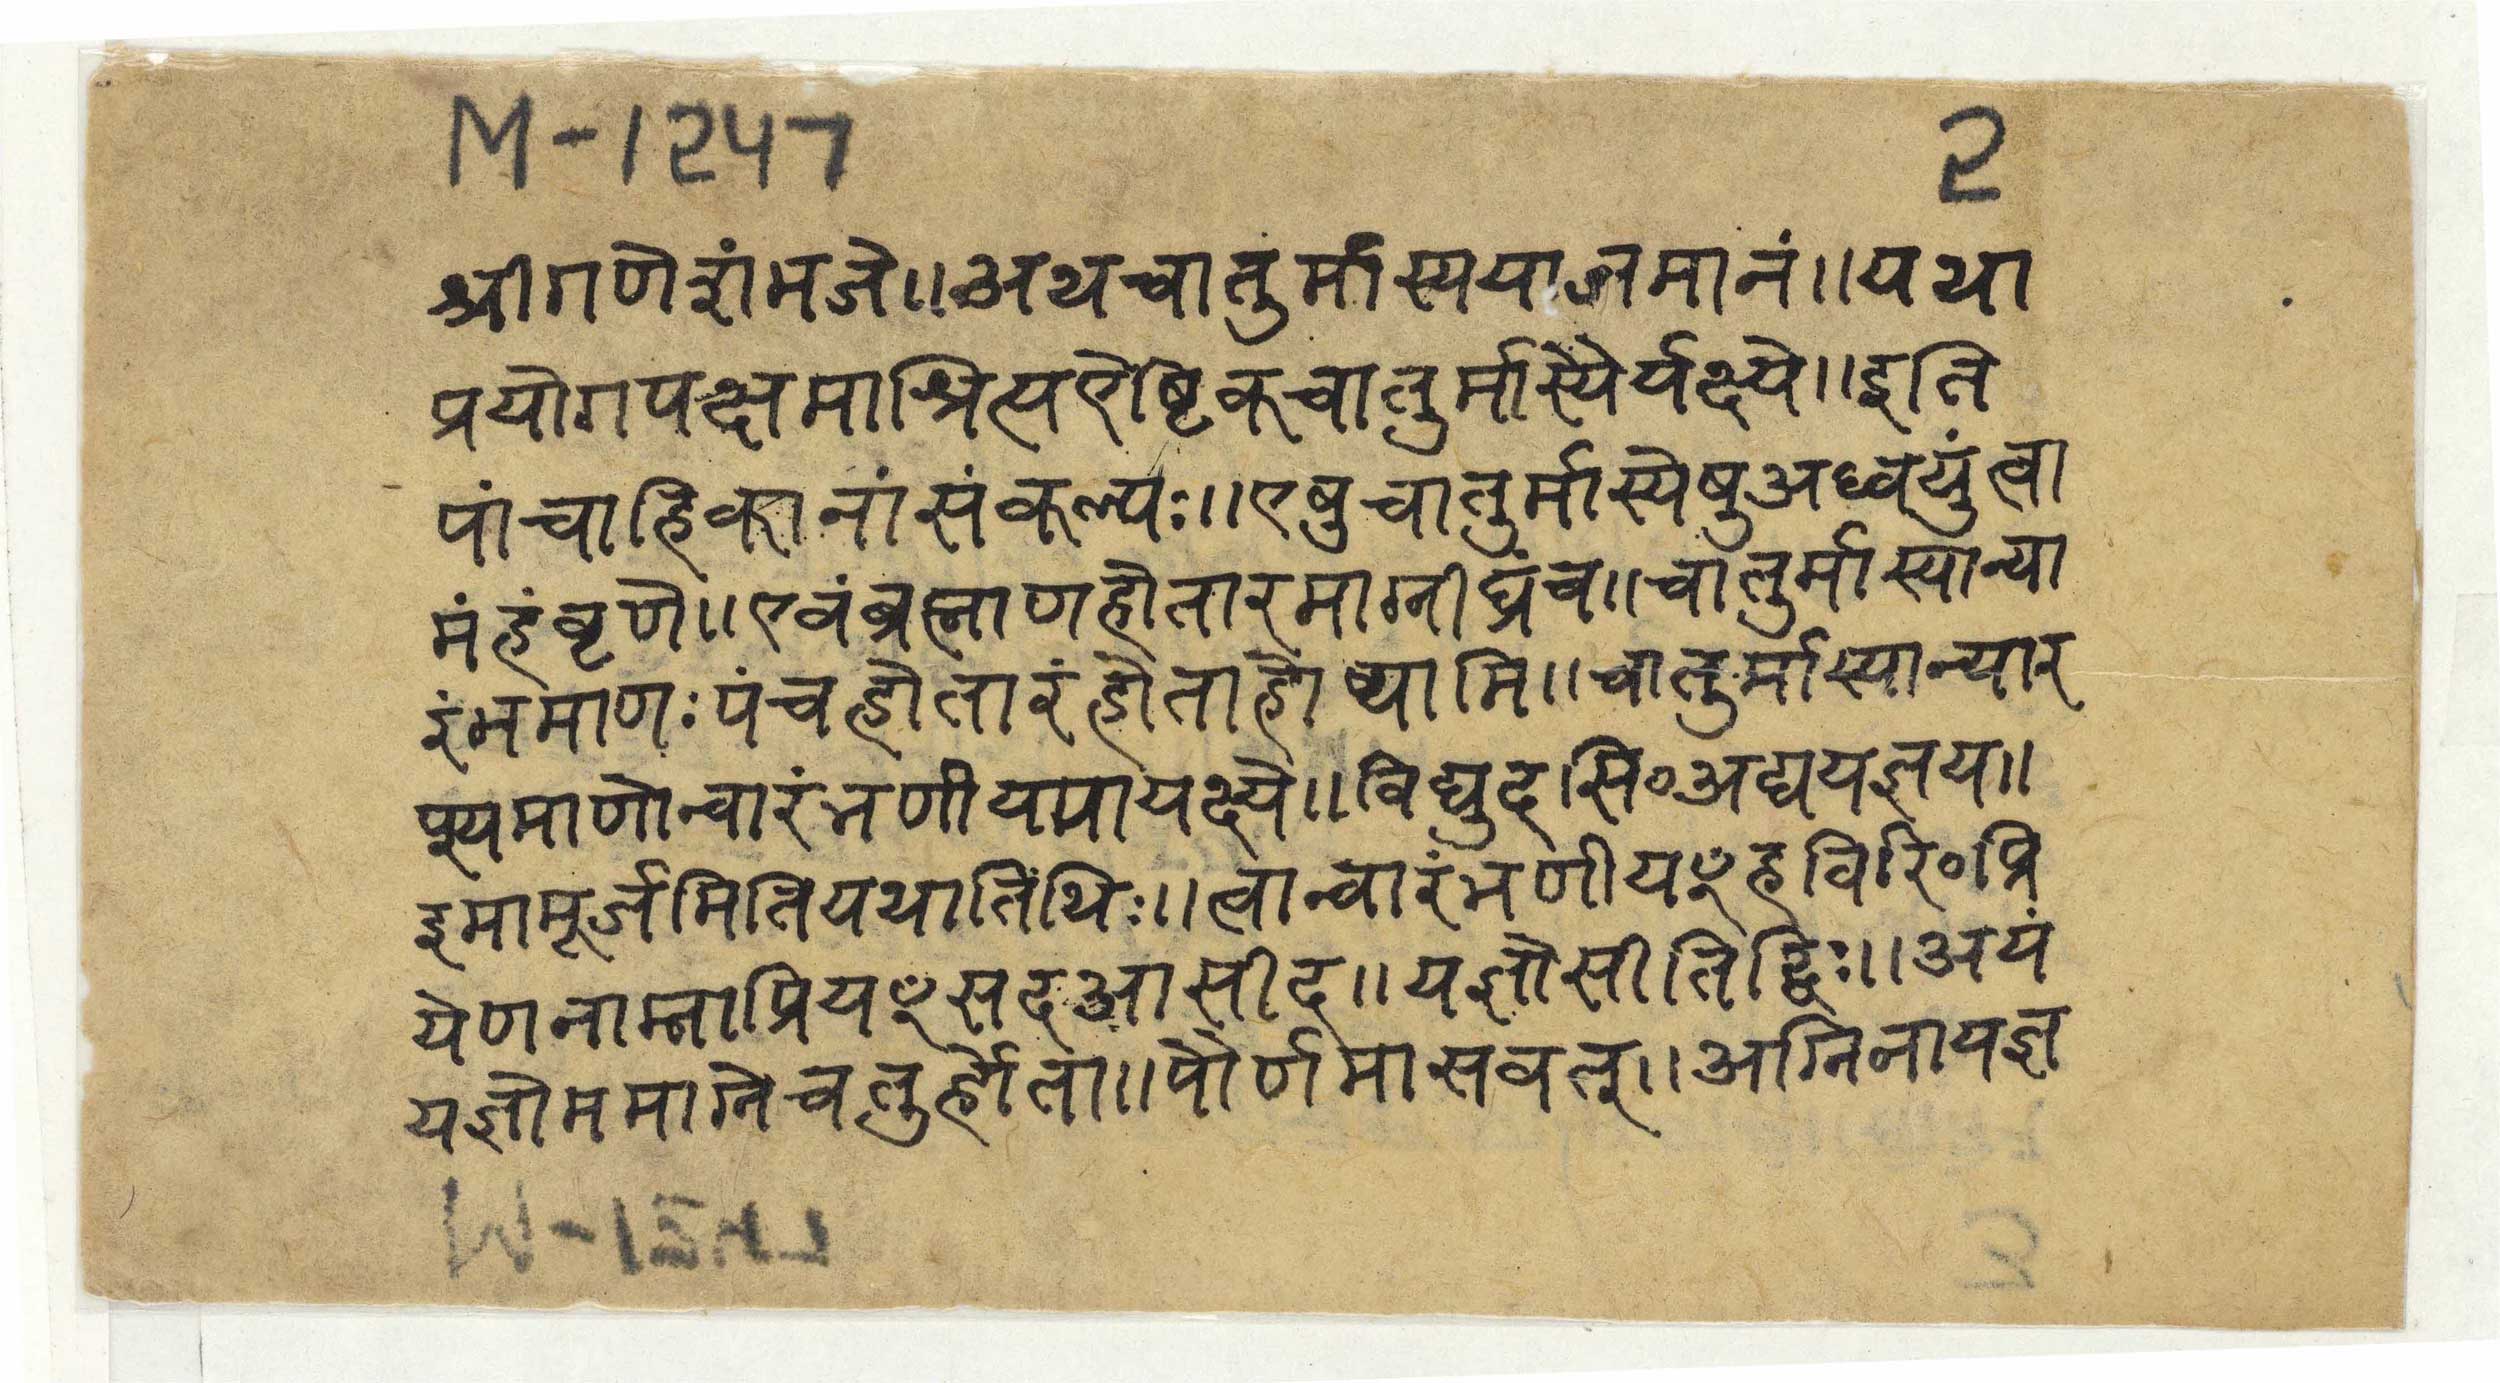 M-1247 2
श्रीगणेशंमजे॥अथचातुर्मास्ययाजमानं॥यथा
प्रयोगपक्षमाश्रित्यऐष्टिकचातुर्मास्यैर्यक्ष्ये॥इति
पांचाहिकानांसंकल्पः॥एषुचातुर्मास्येषुअध्वर्युंत्वा
मंहंवृणे॥एवंब्रह्माणहोतारमाग्नीध्रंच॥चातुर्मास्यान्या
रंभमाणःपंचहोतारंहोताहोष्यामि॥चातुर्मास्यान्यार
प्स्यमाणोन्वारंभणीययायक्ष्ये॥विद्युदसि॰अद्ययज्ञय॥
इमामूर्जमितियथातिथिः॥त्वान्वारंभणीयꣳहविरि॰प्रि
येणनाम्नाप्रियꣳसदआसीद॥यज्ञोसीतिद्विः॥अयं
यज्ञोममाग्नेचतुर्होता॥पौर्णमासवत्॥अग्निनायज्ञ